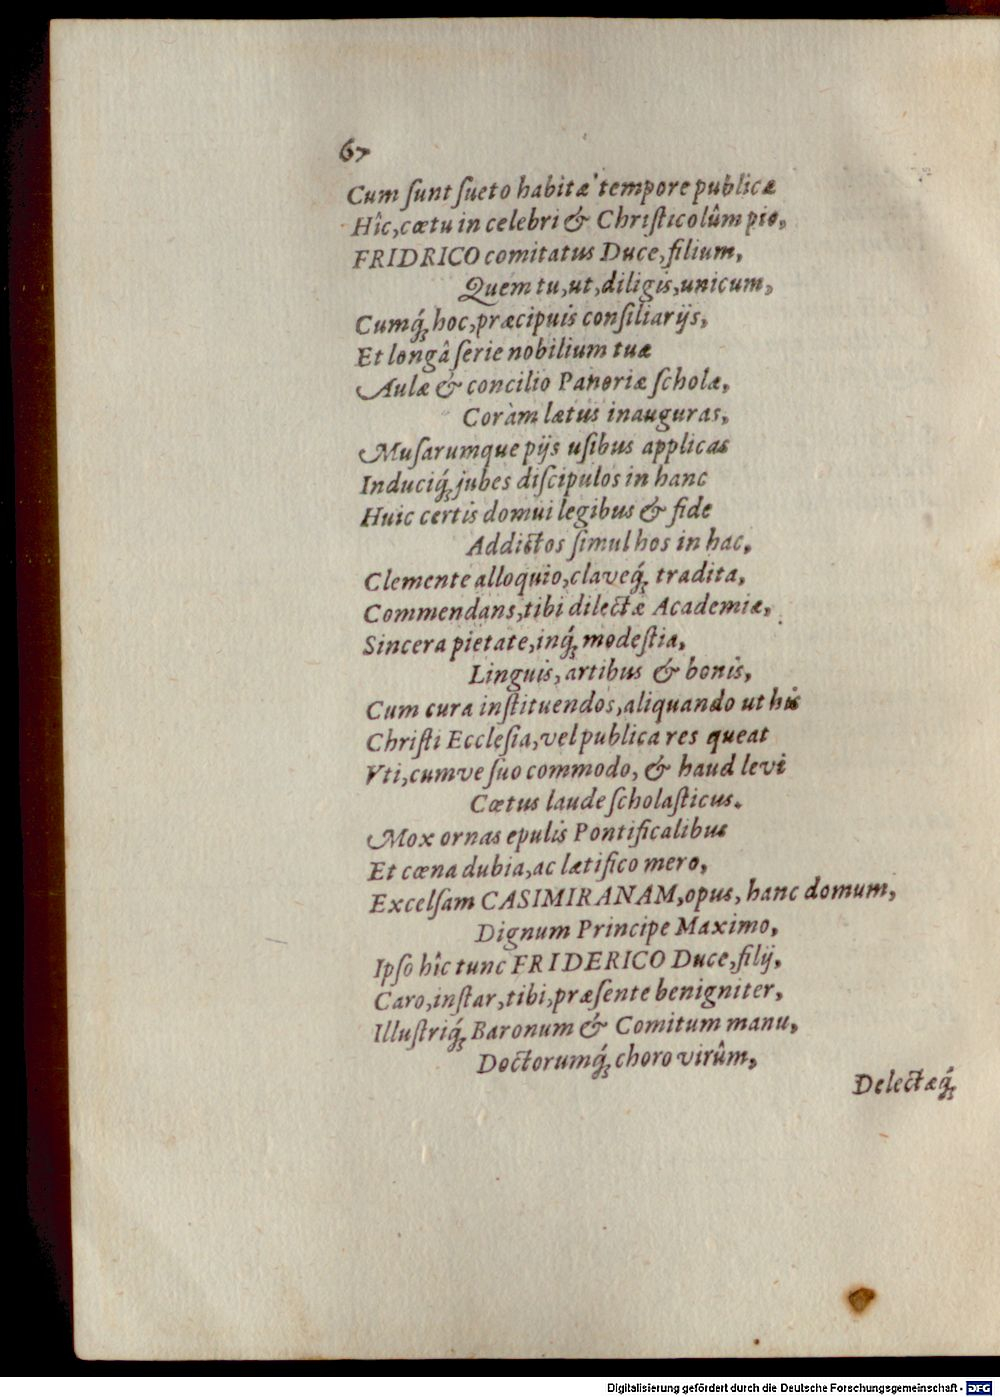 67
Cum ſunt ſueto habitæ tempore publicæ
Hîc, cœtu in celebri & Chriſticolûm pio,
FRIDRICO comitatus Duce, filium,
Quem tu, ut, diligis, unicum,
Cumq́; hoc, præcipuis conſiliarijs,
Et longâ ſerie nobilium tuæ
Aulæ & concilio Panoriæ ſcholæ,
Coràm lætus inauguras,
Muſarumque pijs uſibus applicas
Induciq́; jubes diſcipulos in hanc
Huic certis domui legibus & fide
Addictos ſimul hos in hac,
Clemente alloquio, claveq́; tradita,
Commendans, tibi dilectæ Academiæ,
Sincera pietate, inq́; modeſtia,
Linguis, artibus & bonis,
Cum cura inſtituendos, aliquando ut his
Chriſti Eccleſia, vel publica res queat
Vti, cumve ſuo commodo, & haud levi
Cœtus laude ſcholaſticus.
Mox ornas epulis Pontificalibus
Et cœna dubia, ac lætifico mero,
Excelſam CASIMIRANAM, opus, hanc domum,
Dignum Principe Maximo,
Ipſo hîc tunc FRIDERICO Duce, filij,
Caro, inſtar, tibi, præſente benigniter,
Illuſtriq́; Baronum & Comitum manu,
Doctorumq́; choro virûm,
Delectæq́;
Digitalisierung gefördert durch die Deutsche Forschungsgemeinschaft - DFG